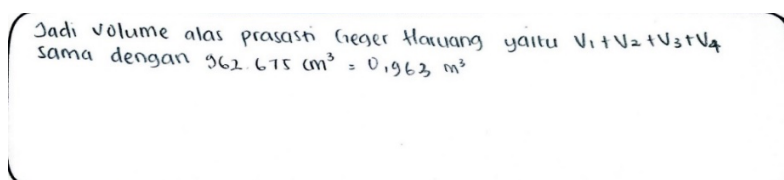 Jadi volume alas prasasti Geger Hanjuang yaitu V₁ + V₂ + V₃ + V₄
sama dengan 962.675 cm³ = 0,963 m³